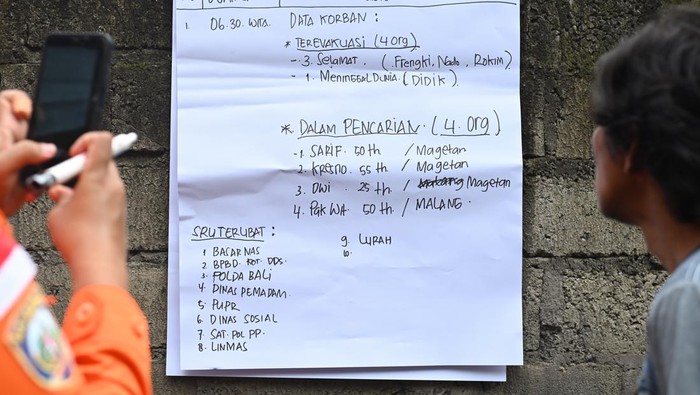 1. 06.30. WITA. DATA KORBAN :
* TEREVAKUASI (4 org)
- 3. SELAMAT, (Frengki, Nado, Rokim)
- 1. MENINGGAL DUNIA. (DIDIK).
* DALAM PENCARIAN. (4. org)
-1 SARIF. 50 th / Magetan
2 KRESNO. 55 th / Magetan
3. DWI. 25 th / Magetan
4. Pak WA. 50 th / MALANG.
SRU TERLIBAT :
1 BASARNAS
2. BPBD. KOT. DPS.
3. POLDA BALI
4. DINAS PEMADAM
5. PUPR
6. DINAS SOSIAL
7 SAT. POL PP.
8. LINMAS
9. LURAH
10.